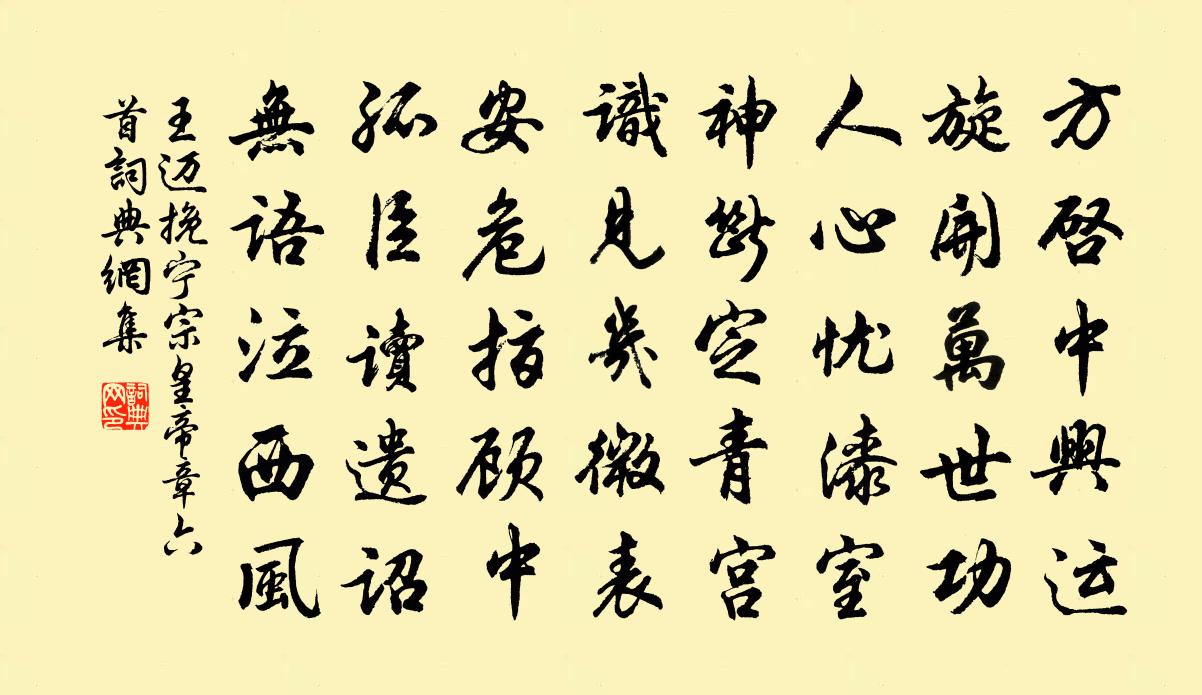 方啓中興运
旋開萬世功
人心忧漆室
神斷定青宫
識見幾微表
安危指顾中
孤臣讀遗詔
無語泣西風
王迈挽宁宗皇帝章六
首詞典網集
詞典网印